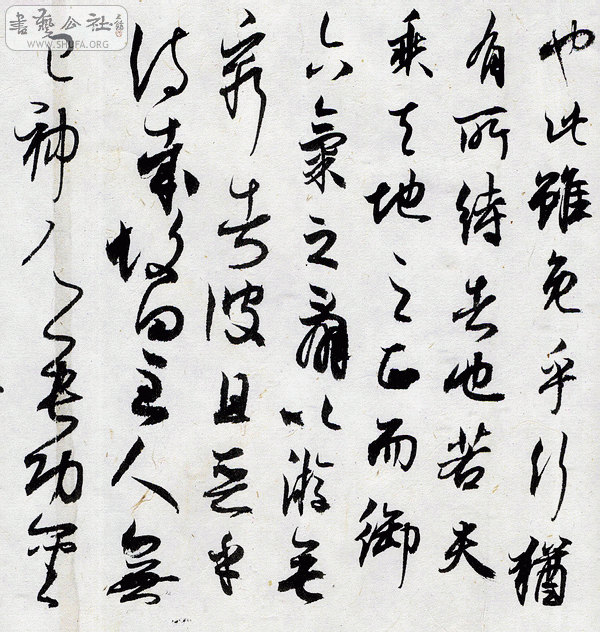 書藝公社
WWW.SHUFA.ORG
也此雖免乎行猶
有所待者也若夫
乘天地之正而御
六氣之辯以游無
窮者彼且惡乎
待哉故曰至人無
己神人無功聖